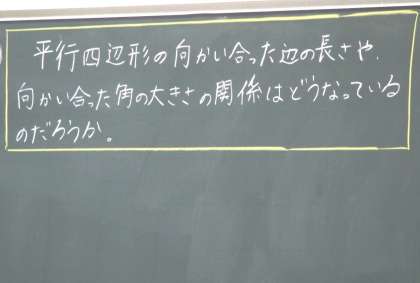 平行四辺形の向かい合った辺の長さや、
向かい合った角の大きさの関係はどうなっている
のだろうか。